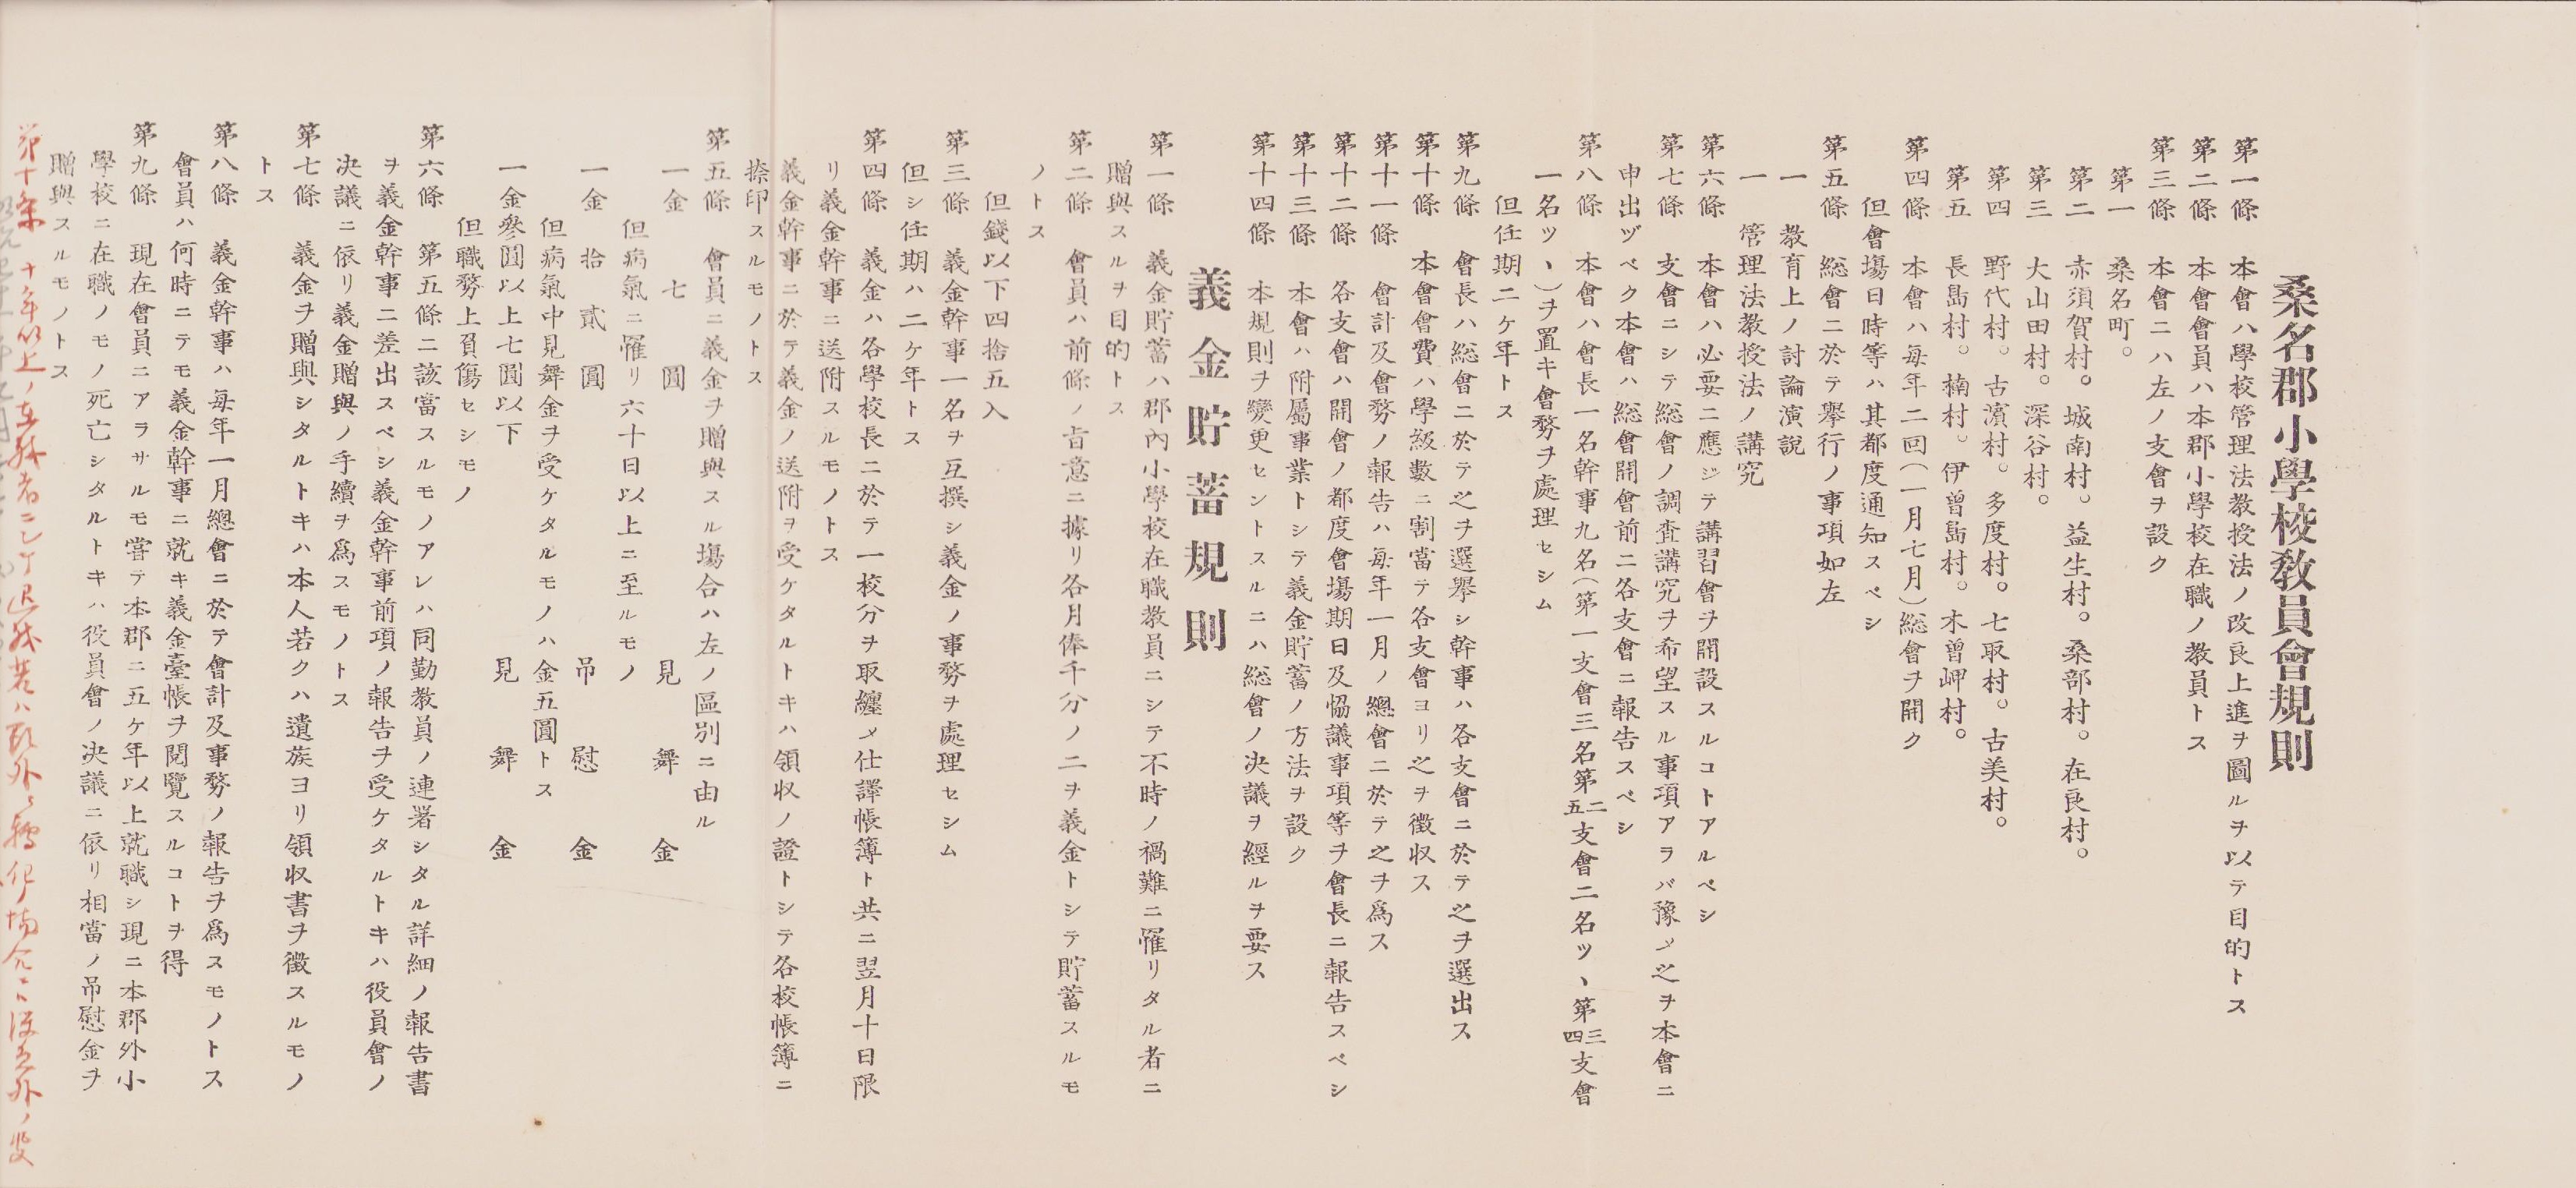 桑名郡小學校敎員會規則
第一條　本會ハ學校管理法教授法ノ改良上進ヲ圖ルヲ以テ目的トス
第二條　本會會員ハ本郡小學校在職ノ教員トス
第三條　本會ニハ左ノ支會ヲ設ク
第一　桑名町。
第二　赤須賀村。城南村。益生村。桑部村。在良村。
第三　大山田村。深谷村。
第四　野代村。古濵村。多度村。七取村。古美村。
第五　長島村。楠村。伊曽島村。木曽岬村。
第四條　本會ハ毎年二回(一月七月)総會ヲ開ク
但會塲日時等ハ其都度通知スベシ
第五條　総會ニ於テ擧行ノ事項如左
一　教育上ノ討論演説
一　管理法教授法ノ講究
第六條　本會ハ必要ニ應ジテ講習會ヲ開設スルコトアルベシ
第七條　支會ニシテ総會ノ調査講究ヲ希望スル事項アラバ豫メ之ヲ本會ニ
申出ヅベク本會ハ総會開會前ニ各支會ニ報告スベシ
第八條　本會ハ會長一名幹事九名(第一支會三名第二五支會二名ツヽ第三四支會
一名ツヽ)ヲ置キ會務ヲ處理セシム
但任期二ケ年トス
第九條　會長ハ総會ニ於テ之ヲ選擧シ幹事ハ各支會ニ於テ之ヲ選出ス
第十條　本會會費ハ學級數ニ割當テ各支會ヨリ之ヲ徴収ス
第十一條　會計及會務ノ報告ハ毎年一月ノ總會ニ於テ之ヲ爲ス
第十二條　各支會ハ開會ノ都度會塲期日及恊議事項等ヲ會長ニ報告スベシ
第十三條　本會ハ附屬事業トシテ義金貯蓄ノ方法ヲ設ク
第十四條　本規則ヲ變更セントスルニハ総會ノ决議ヲ經ルヲ要ス
義金貯蓄規則
第一條　義金貯蓄ハ郡內小學校在職教員ニシテ不時ノ禍難ニ罹リタル者ニ
贈與スルヲ目的トス
第二條　會員ハ前條ノ旨意ニ據リ各月俸千分ノ二ヲ義金トシテ貯蓄スルモ
ノトス
但錢以下四捨五入
第三條　義金幹事一名ヲ互撰シ義金ノ事務ヲ處理セシム
但シ任期ハ二ケ年トス
第四條　義金ハ各學校長ニ於テ一校分ヲ取纏メ仕譯帳簿ト共ニ翌月十日限
リ義金幹事ニ送附スルモノトス
義金幹事ニ於テ義金ノ送附ヲ受ケタルトキハ領収ノ證トシテ各校帳簿ニ
捺印スルモノトス
第五條　會員ニ義金ヲ贈與スル塲合ハ左ノ區別ニ由ル
一金　七　圓　見　舞　金
但病氣ニ罹リ六十日以上ニ至ルモノ
一金　拾　貳　圓　吊　慰　金
但病氣中見舞金ヲ受ケタルモノハ金五圓トス
一金參圓以上七圓以下　見　舞　金
但職務上負傷セシモノ
第六條　第五條ニ該當スルモノアレハ同勤教員ノ連署シタル詳細ノ報告書
ヲ義金幹事ニ差出スベシ義金幹事前項ノ報告ヲ受ケタルトキハ役員會ノ
决議ニ依リ義金贈與ノ手續ヲ爲スモノトス
第七條　義金ヲ贈與シタルトキハ本人若クハ遺族ヨリ領収書ヲ徴スルモノ
トス
第八條　義金幹事ハ毎年一月總會ニ於テ會計及事務ノ報告ヲ爲スモノトス
會員ハ何時ニテモ義金幹事ニ就キ義金臺帳ヲ閱覽スルコトヲ得
第九條　現在會員ニアラサルモ甞テ本郡ニ五ケ年以上就職シ現ニ本郡外小
學校ニ在職ノモノ死亡シタルトキハ役員會ノ决議ニ依リ相當ノ吊慰金ヲ
贈與スルモノトス